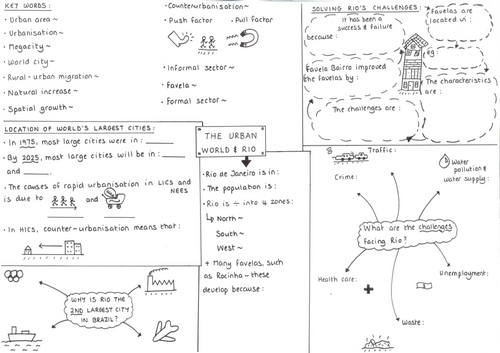 KEY WORDS:
• Urban area ~
• Urbanisation ~
• Megacity ~
• World city ~
• Rural - urban migration ~
• Natural increase ~
• Spatial growth ~
• Counterurbanisation ~
• Push factor
• Pull factor
• Informal sector ~
• Favela ~
• Formal sector ~
SOLVING RIO'S CHALLENGES:
It has been a
success & failure
because :
Favela Bairro improved
the favelas by :
The challenges are :
Favelas are
located in :
eg:
The characteristics
are :
LOCATION OF WORLD'S LARGEST CITIES:
• In 1975, most large cities were in :
• By 2025, most large cities will be in :
and
• The causes of rapid urbanisation in LICs and
NEEs
is due to
and
• In HICs, counter-urbanisation means that:
THE URBAN
WORLD & RIO
• Rio de Janeiro is in:
• The population is:
• Rio is ÷ into 4 zones:
↳ North ~
South ~
West ~
+ Many favelas, such
as Rocinha ~ these
develop because :
WHY IS RIO THE
2ND LARGEST CITY
IN BRAZIL?
Traffic:
Crime:
Water
pollution &
water supply:
What are the challenges
facing Rio?
Health care:
Unemployment:
Waste: